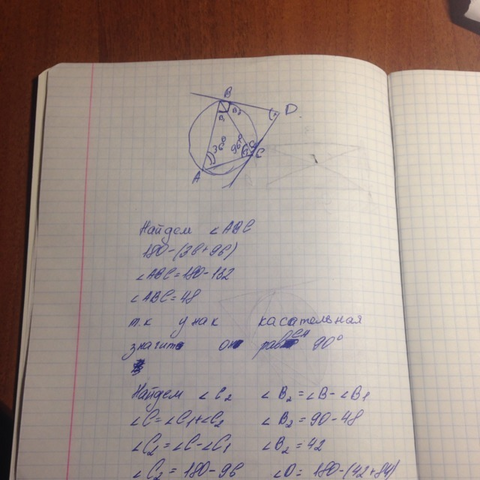 B
D
C
A
Найдем ∠ABC
180-(36+96)
∠ABC=180-132
∠ABC=48
т.к у нак касательная
значит он 90°
Найдем ∠C₂
∠C=∠C₁+∠C₂
∠C₂=∠C-∠C₁
∠C₂=180-96
∠B₂=∠B-∠B₁
∠B₂=90-48
∠B₂=42
∠D=180-(42+84)